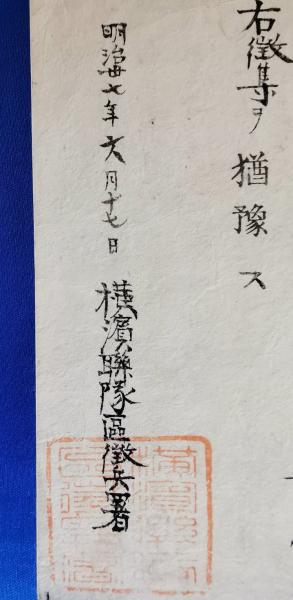 右徴集ヲ猶豫ス
明治廿七年六月十七日
横濱聯隊區徴兵署